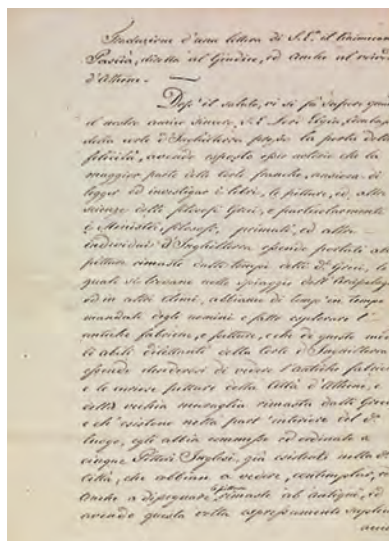 Traduzione d'una lettera di S.E. il Caimacam
Pascià, diretta al Giudice, ed anche al
d'Athene.
Dopo il saluto, vi si fà sapere
il nostro amico sincero S.E. Lord Elgin,
della corte d'Inghilterra presso la porta della
felicità, avendo esposto esser notorio che la
maggior parte delle corti franche, ansiosa di
legger ed investigar i libri, le pitture, ed altre
scienze delli filosofi Greci, e particolarmente
i Ministri, filosofi, primati, ed altri
individui d'Inghilterra essendo portati
pitture rimaste dalli tempi delli di Greci, le
quali si trovano nelle spiaggie dell'Arcipelago
ed in altri climi, abbiano di tempo in tempo
mandati degli uomini e fatto esplorare l'
antiche fabriche, e pitture, e che di questo
li abili dilettanti della corte d'Inghilterra
essendo desiderosi di vedere l'antiche fabriche
e le curiose pitture della Città d'Athene, e
della vecchia muraglia rimasta dalli Greci
e ch'esistono nella part'interiore del
luogo, egli abbia commesso ed ordinato a
cinque Pittori Inglesi, già esistenti nella
città, che abbiano a vedere, contemplar, ed
anche a disegnare le pitture rimaste ab antiquo, ed
avendo questa volta espressamente